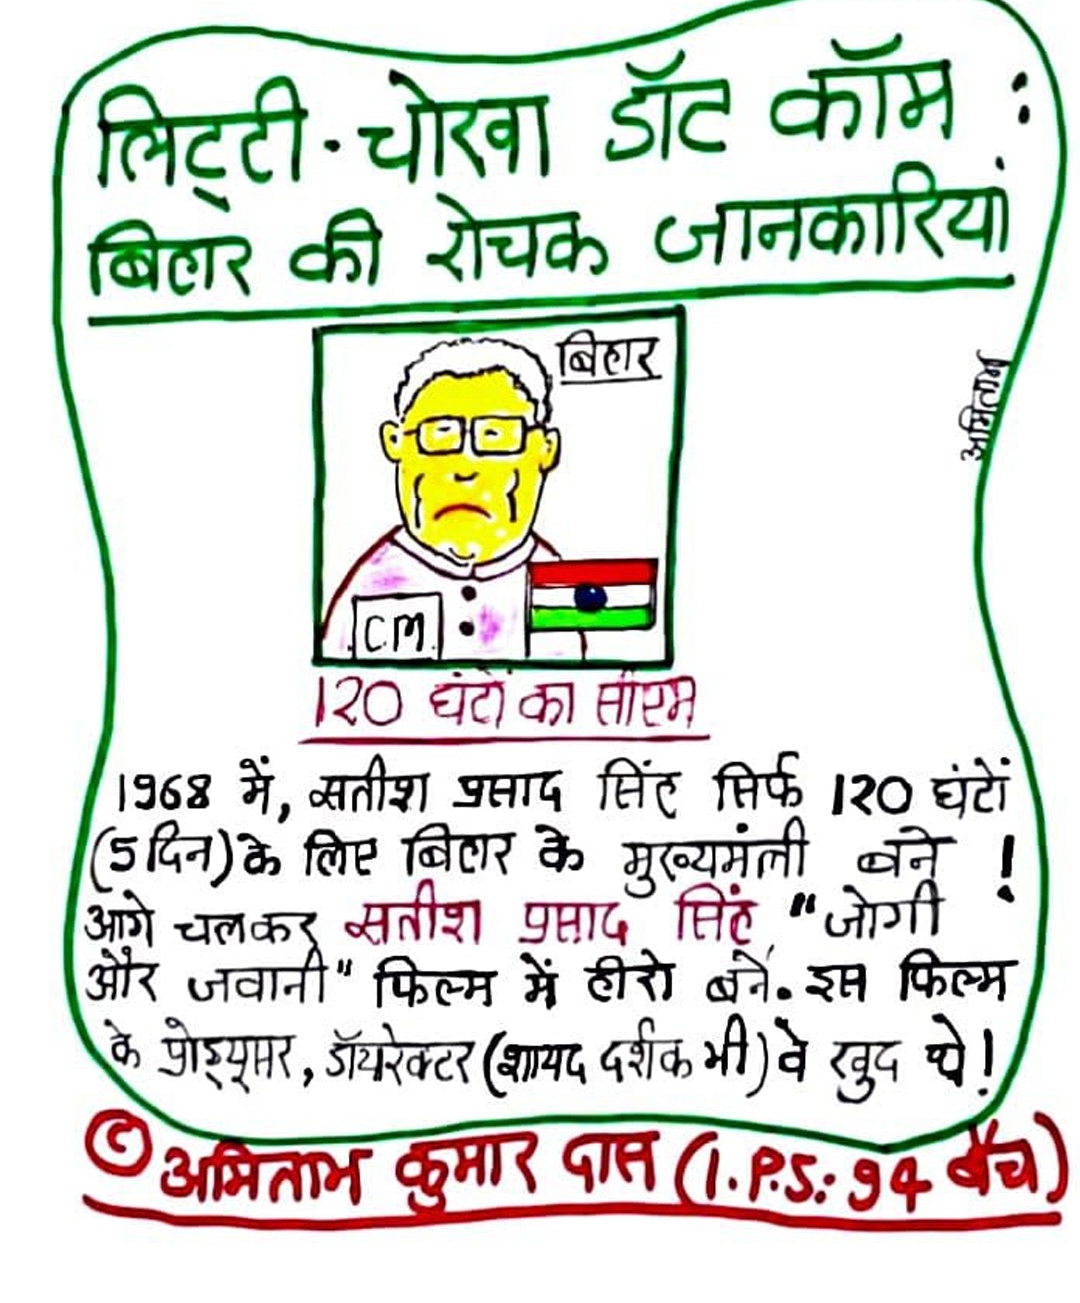 लिट्टी-चोखा डॉट कॉम :
बिहार की रोचक जानकारियां
बिहार
अमिताभ
C.M.
120 घंटों का सीएम
1968 में, सतीश प्रसाद सिंह सिर्फ 120 घंटों
(5 दिन) के लिए बिहार के मुख्यमंत्री बने !
आगे चलकर सतीश प्रसाद सिंह, "जोगी
और जवानी" फिल्म में हीरो बने. इस फिल्म
के प्रोड्यूसर, डॉयरेक्टर (शायद दर्शक भी) वे खुद थे!
© अमिताभ कुमार दास (I.P.S.: 94 बैच)